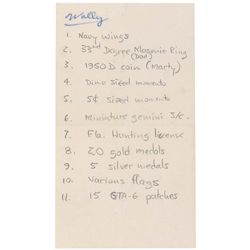 Wally
1. Navy Wings
2. 33nd Degree Masonic Ring
(Dad)
3. 1950 D coin (Marty)
4. Dime sized momento
5. 5¢ sized momento
6. Miniature gemini S/C.
7. Fla. Hunting license
8. 20 gold medals
9. 5 silver medals
10. Various flags
11. 15 GTA-6 patches